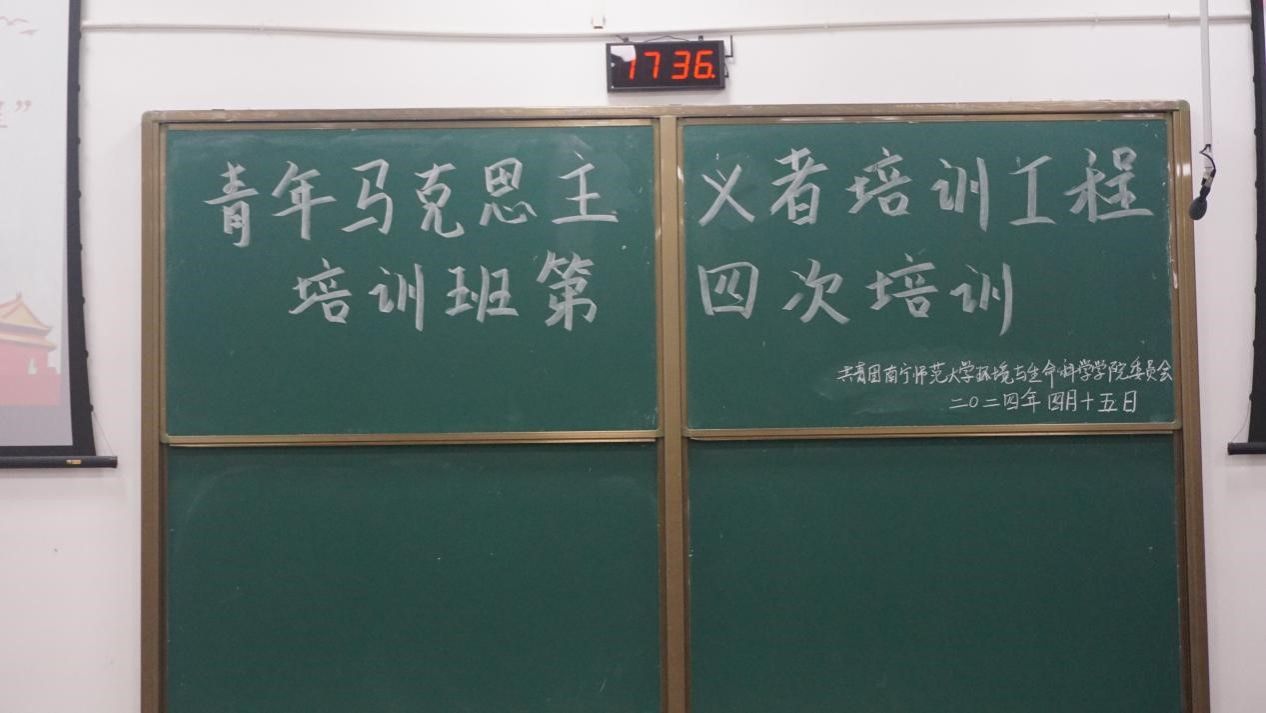 17 36
青年马克思主义者培训工程
培训班第四次培训
共青团南宁师范大学环境与生命科学学院委员会
二〇二四年四月十五日